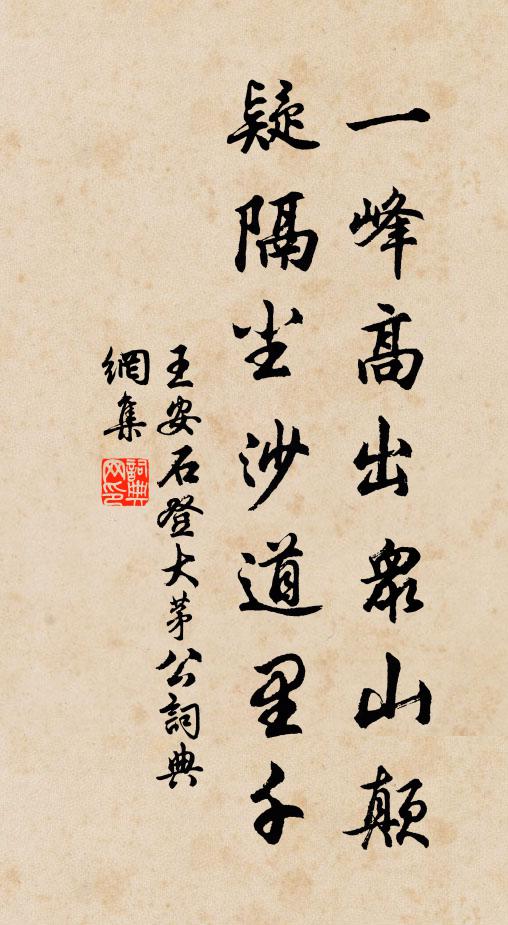 一峰高出眾山顛
疑隔尘沙道里千
王安石登大茅公詞典
網集
詞典
网印